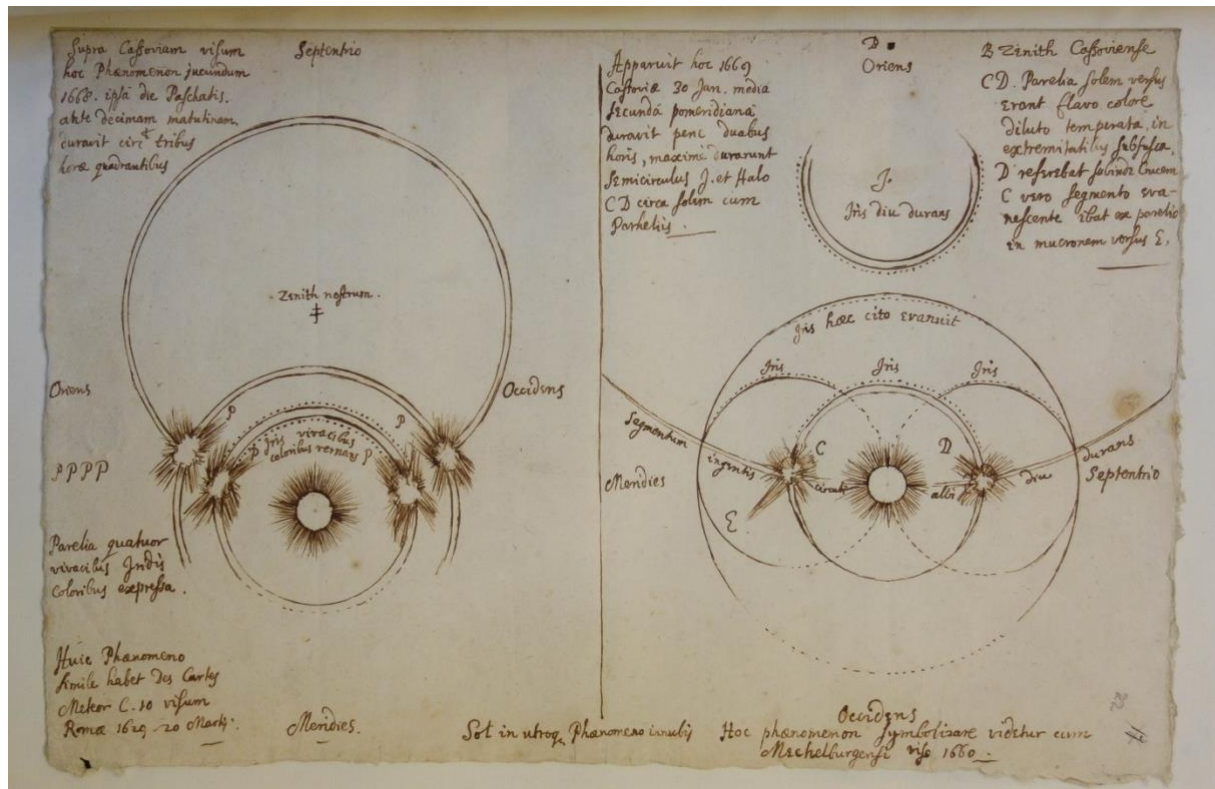 Supra Cassoviam visum
hoc Phænomenon jucundum
1668. ipsa die Paschatis.
ante decimam matutinam
duravit circ tribus
horæ quadrantibus
Septentrio
Zenith nostrum.
Oriens
Occidens
P
P
P Iris vivacibus
coloribus vernans P
P P P P
Parelia quatuor
vivacibus Iridis
coloribus expressa.
Huic Phænomeno
simile habet Des Cartes
Meteor C. 10 visum
Romæ 1629 20 Martij.
Meridies.
Sol in utroq Phænomeno innubis
Apparuit hoc 1669
Cassoviæ 30 Jan. media
secunda pomeridiana
duravit pene duabus
horis, maxime durarunt
Semicirculus J. et Halo
CD circa solem cum
Parheliis.
B
Oriens
J.
Iris diu durans
B Zenith Cassoviense
CD. Parelia Solem versus
erant flavo colore
diluto temperata, in
extremitatibus subfusca.
D referebat subinde Crucem
C vero segmento eva-
nescente ibat ex parelio
in mucronem versus E.
Iris hæc cito evanuit
Iris
Iris
Iris
Segmentum ingentis circuli albi diu durans
C
D
E
Meridies
Septentrio
Occidens
Hoc phænomenon symbolizare videtur cum
Mechelburgensi viso 1660.